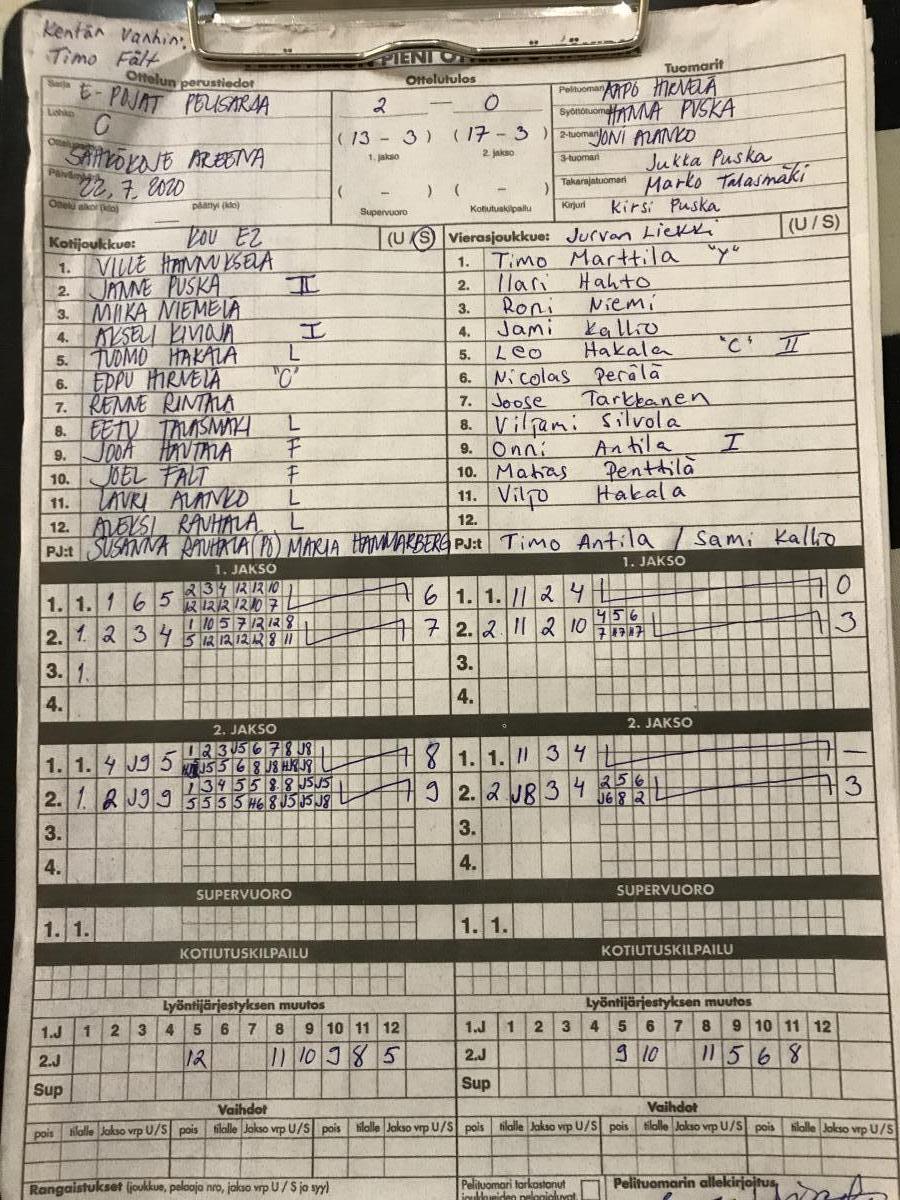 Kentän vanhin:
Timo Fält
PIENI
Ottelun perustiedot
Ottelutulos
Tuomarit
Sarja E-POJAT PELISARJA
Lohko C
SÄHKÖKOJE AREENA
22.7.2020
Ottelu alkoi (klo) päättyi (klo)
2 — 0
(13 - 3) (17 - 3)
1. jakso 2. jakso
( - ) ( - )
Supervuoro Kotiutuskilpailu
Pelituomari AAPO HIRVELÄ
Syöttötuomari HANNA PUSKA
2-tuomari JONI ALANKO
3-tuomari Jukka Puska
Takarajatuomari Marko Talasmäki
Kirjuri Kirsi Puska
Kotijoukkue: KOU E2 (U / S)
1. VILLE HANNUKSELA
2. JANNE PUSKA II
3. MIIKA NIEMELÄ
4. AKSELI KIVIOJA I
5. TUOMO HAKALA L
6. EPPU HIRVELÄ "C"
7. RENNE RINTALA
8. EETU TALASMÄKI L
9. JOOA HAUTALA F
10. JOEL FÄLT F
11. LAURI ALANKO L
12. ALEKSI RAUHALA L
PJ:t SUSANNA RAUHALA (PJ) MARJA HAMMARBERG
Vierasjoukkue: Jurvan Liekki (U / S)
1. Timo Marttila "Y"
2. Ilari Hahto
3. Roni Niemi
4. Jami Kallio
5. Leo Hakala "C" II
6. Nicolas Perälä
7. Joose Tarkkanen
8. Viljami Silvola
9. Onni Antila I
10. Matias Penttilä
11. Viljo Hakala
12.
PJ:t Timo Antila / Sami Kallio
1. JAKSO
1. 1. 1 6 5 2 3 4 12 12 10 6
12 12 12 12 10 7
2. 1. 2 3 4 1 10 5 7 12 12 8 7
5 12 12 12 12 8 11
3. 1.
4.
1. JAKSO
1. 1. 11 2 4 0
2. 2. 11 2 10 4 5 6 3
3.
4.
2. JAKSO
1. 1. 4 J9 5 1 2 3 J5 6 7 8 J8 8
2. 1. 2 J9 9 1 3 4 5 5 8 8 J5 J5 9
5 5 5 5 H6 8 J5 J5 J8
3.
4.
2. JAKSO
1. 1. 11 3 4 —
2. 2. J8 3 4 2 5 6 3
J6 8 2
3.
4.
SUPERVUORO
1. 1.
SUPERVUORO
1. 1.
KOTIUTUSKILPAILU
KOTIUTUSKILPAILU
Lyöntijärjestyksen muutos
1.J 1 2 3 4 5 6 7 8 9 10 11 12
2.J 12 11 10 9 8 5
Sup
Lyöntijärjestyksen muutos
1.J 1 2 3 4 5 6 7 8 9 10 11 12
2.J 9 10 11 5 6 8
Sup
Vaihdot
pois tilalle Jakso vrp U/S pois tilalle Jakso vrp U/S pois tilalle Jakso vrp U/S
Vaihdot
pois tilalle Jakso vrp U/S pois tilalle Jakso vrp U/S pois tilalle Jakso vrp U/S
Rangaistukset (joukkue, pelaaja nro, jakso vrp U / S ja syy)
Pelituomari tarkastanut
joukkueiden pelaajaluvat
Pelituomarin allekirjoitus